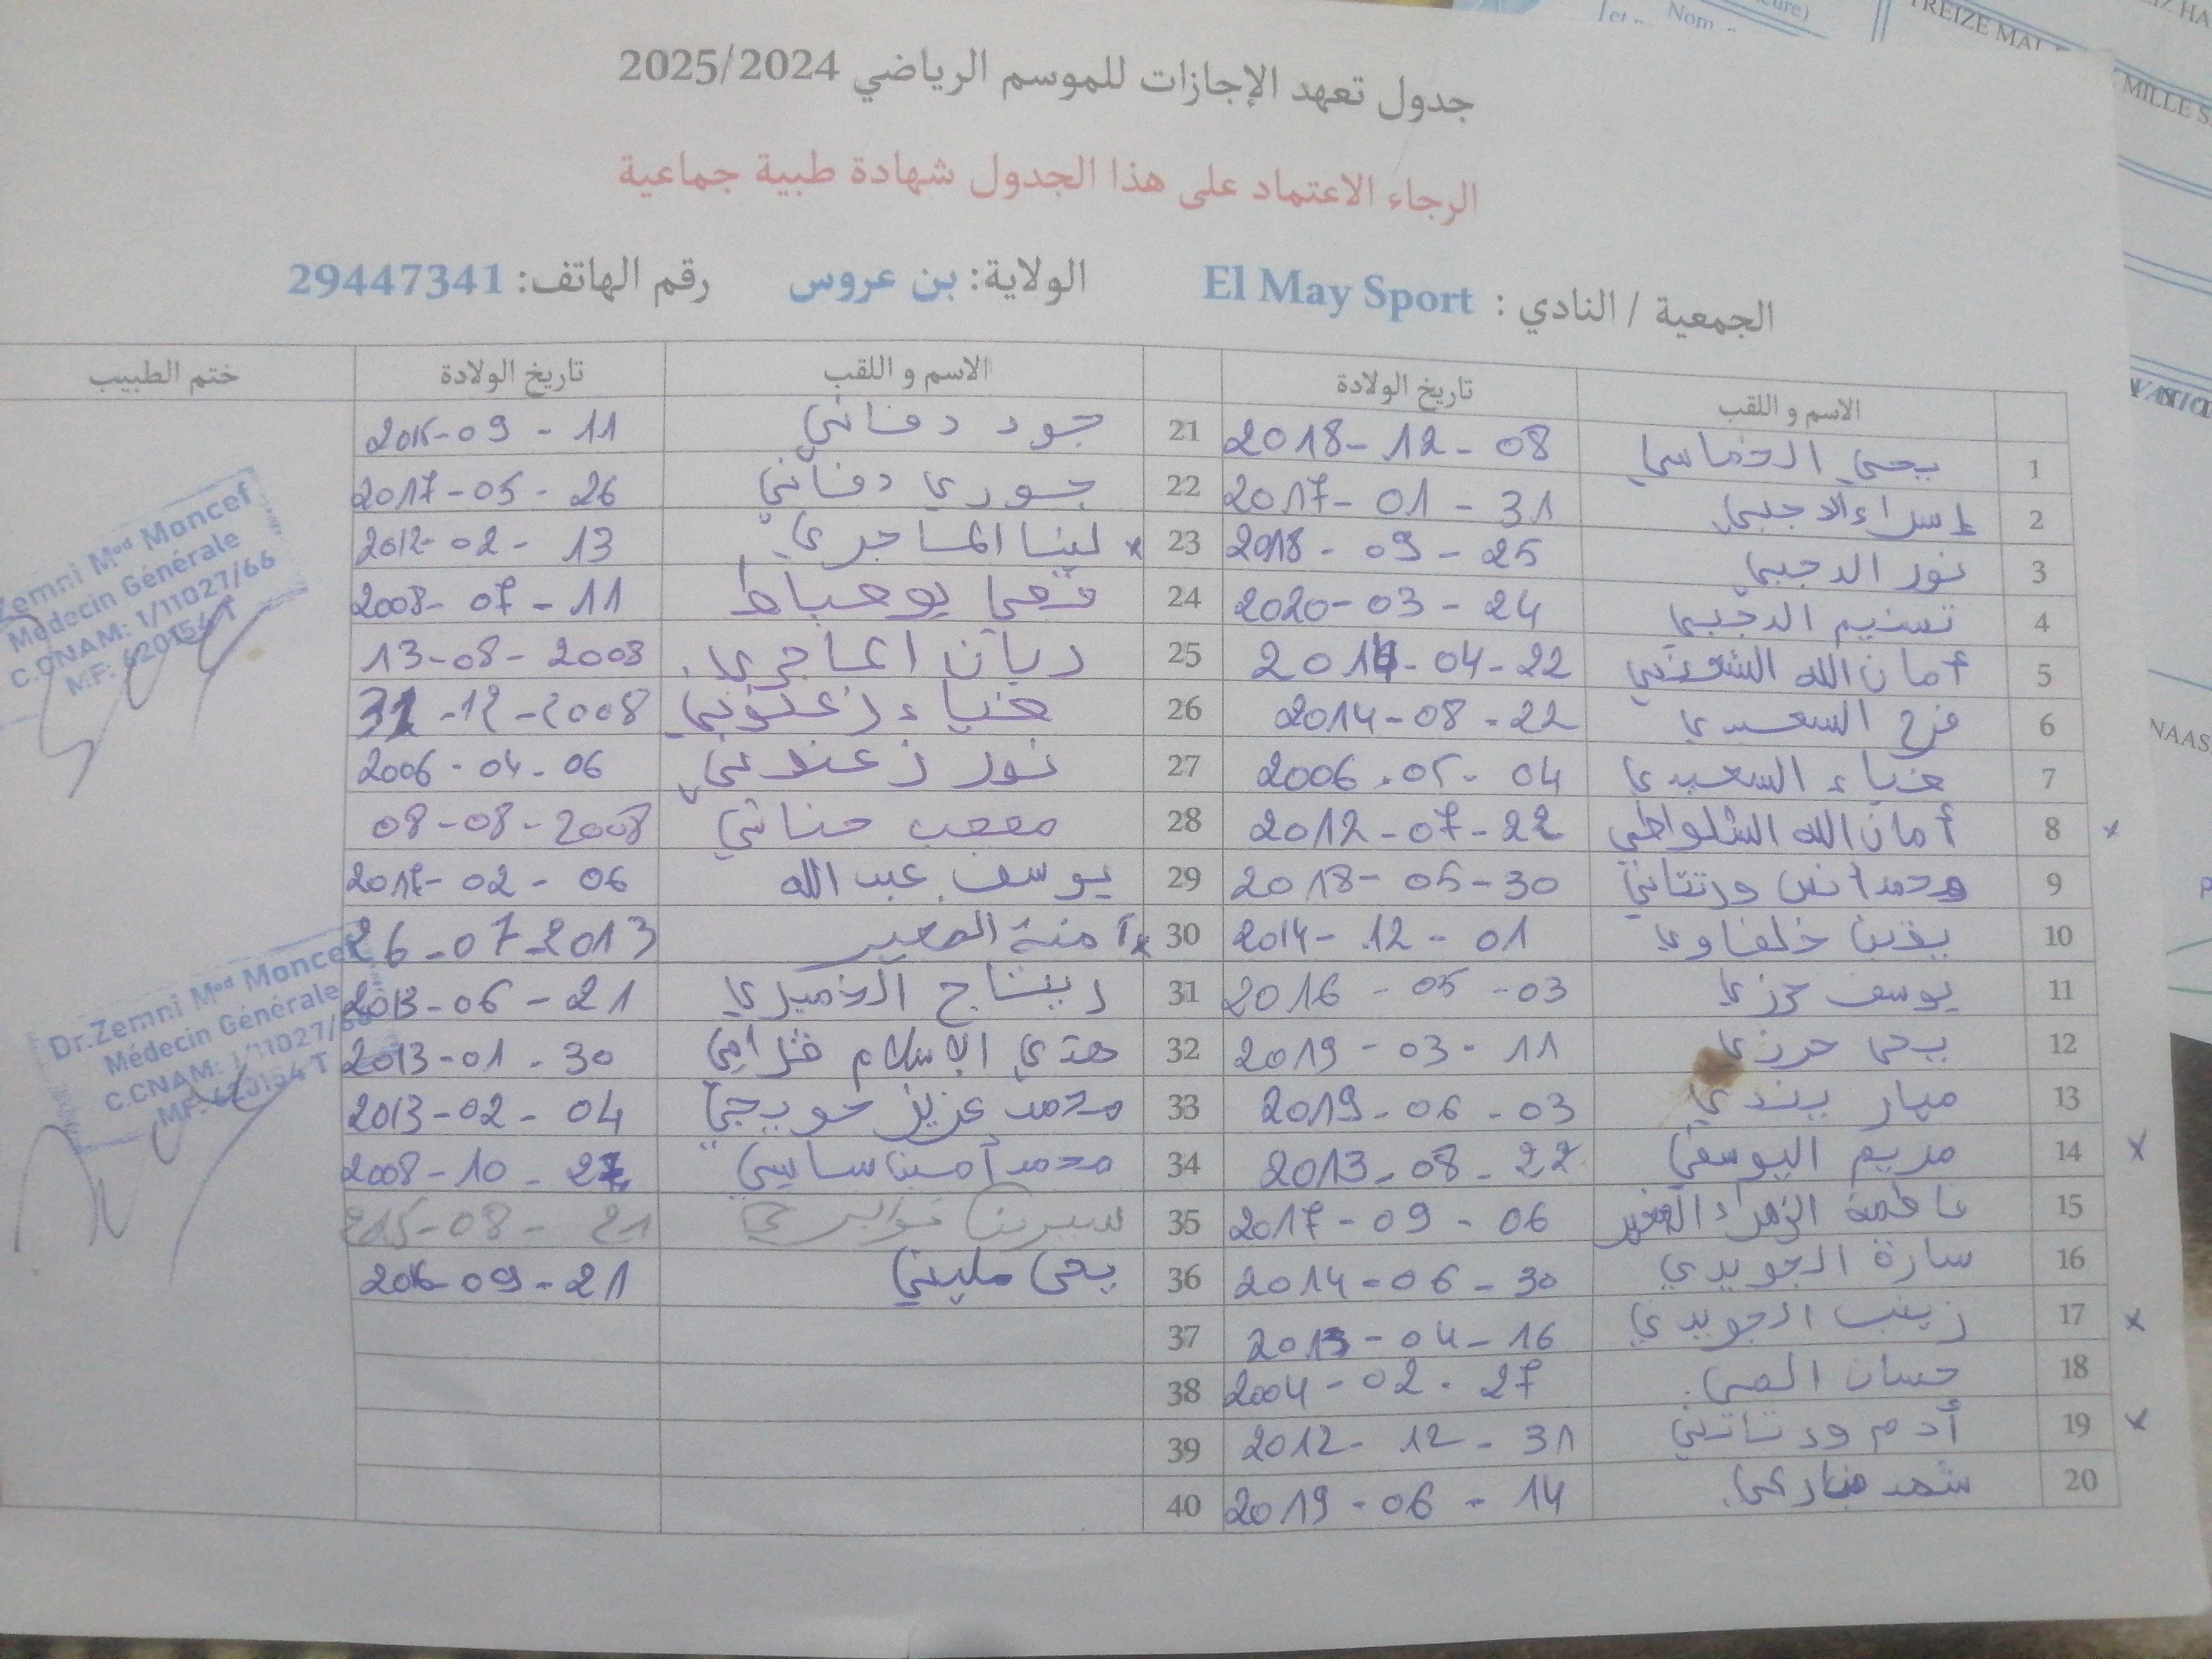 جدول تعهد الإجازات للموسم الرياضي 2025/2024
الرجاء الاعتماد على هذا الجدول شهادة طبية جماعية
الجمعية / النادي : El May Sport الولاية: بن عروس رقم الهاتف: 29447341
الاسم و اللقب تاريخ الولادة الاسم و اللقب تاريخ الولادة ختم الطبيب
1 يحي الخماسي 2018-12-08
2 إسراء الدجبي 2017-01-31
3 نور الدجبي 2018-09-25
4 تسنيم الدجبي 2020-03-24
5 أمان الله 04-22
6 فرح السعيدي 2014-08-22
7 ضياء السعيدي 2006-05-04
8 أمان الله الشلواطي 2012-07-22
9 محمد أنس ورتتاني 2018-05-30
10 يقين خلفاوي 2014-12-01
11 يوسف حرزي 2016-05-03
12 يحى حرزي 2019-03-11
13 مهار 2019-06-03
14 مريم اليوسفي 2013-08-22
15 فاطمة الزهراء 2017-09-06
16 سارة الجويدي 2014-06-30
17 زينب الجويدي 2013-04-16
18 حسان 2004-02-27
19 أدم ورتتاني 2012-12-31
20 شهد 2019-06-14
21 جود دفاني 09-11
22 جوري دفاني 2017-05-26
23 لينا الماجري 2012-02-13
24 قصي بوعياط 2008-07-11
25 ريان الماجري 13-08-2008
26 ضياء زعنوني 31-12-2008
27 نور زعنوني 2006-04-06
28 مصعب مناني 08-08-2008
29 يوسف عبد الله 2017-02-06
30 آمنة الصغير 26-07-2013
31 ريتاج الخميري 2013-06-21
32 هدى الإسلام 2013-01-30
33 محمد عزيز خويجي 2013-02-04
34 محمد أمين ساسي 2008-10-27
35 سيرين 08-21
36 يحى مليتي 2016-09-21
37
38
39
40
Zemni Med Moncef
Médecin Générale
C.CNAM: 1/11027/66
MF: 620154 T
Dr. Zemni Med Moncef
Médecin Générale
C.CNAM: 1/11027/66
MF: 620154 T
Nom
TREIZE
MILLE